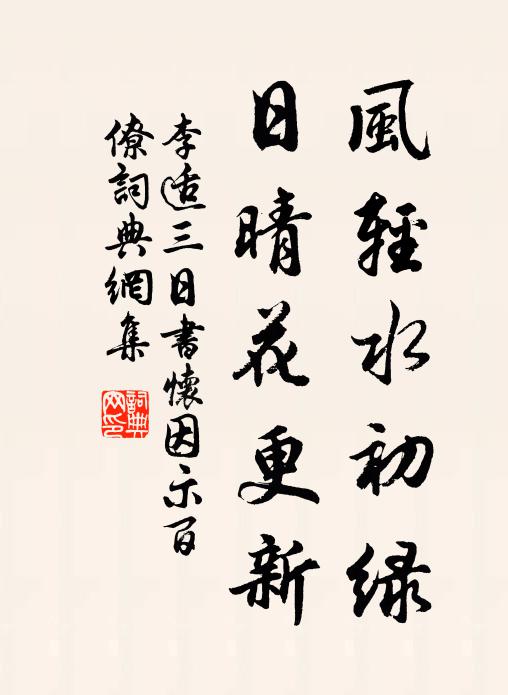 風輕水初緑
日晴花更新
李适三日書懷因示百
僚詞典網集
詞典网印